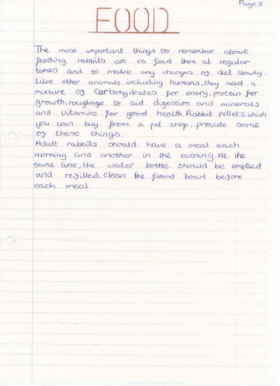 Page 2
FOOD
The most important things to remember about
feeding rabbits are to feed them at regular
times and to make any changes of diet slowly.
Like other animals including humans, they need a
mixture of Carbohydrates for energy, protein for
growth, roughage to aid digestion and minerals
and vitamins for good health. Rabbit pellets, which
you can buy from a pet shop, provide some
of these things.
Adult rabbits should have a meal each
morning and another in the evening. At the
same time, the water bottle should be emptied
and refilled. Clean the food bowl before
each meal